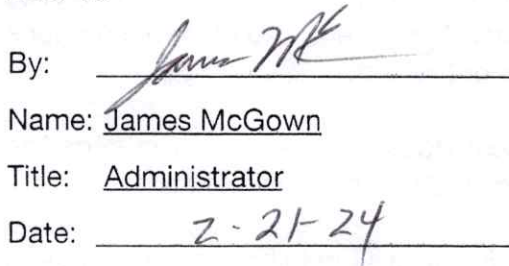 By: James Mc
Name: James McGown
Title: Administrator
Date: 2-21-24